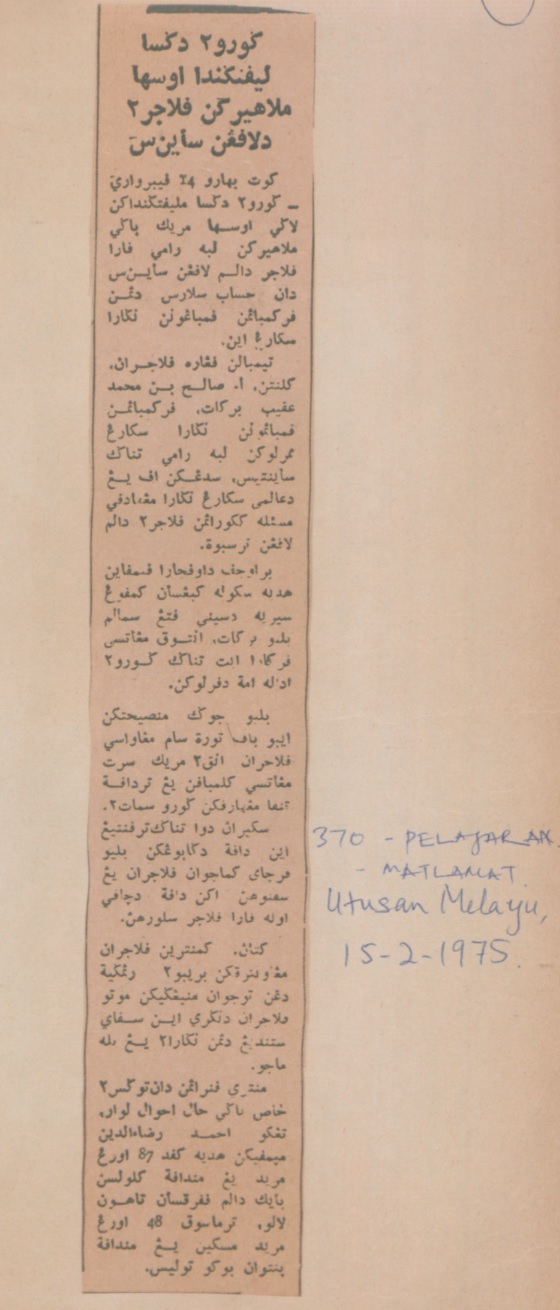 ݢورو٢ دݢسا
ليڤتݢندا اوسها
ملاهيرکن ڤلاجر٢
دلاڤڠن ساٴينس
کوت بهارو 14 فيبرواري
ــ ݢورو٢ دݢسا مليڤتݢنداکن
لاݢي اوسها مريك باݢي
ملاهيرکن لبه رامي ڤارا
ڤلاجر دالم لاڤڠن ساٴينس
دان حساب سلارس دڠن
ڤرکمباڠن ڤمباڠونن نݢارا
سکارڠ اين.
تيمبالن ڤڠاره ڤلاجران،
کلنتن، أ. صالح بن محمد
عقيب برکات، ڤرکمباڠن
ڤمباڠونن نݢارا سکارڠ
ممرلوکن لبه رامي تناݢ
ساينتيس، سدڠکن اڤ يڠ
دعالمي سکارڠ نݢارا مڠهادڤي
مسئله ککوراڠن ڤلاجر٢ دالم
لاڤڠن ترسبوة.
براوچڤ داوڤچارا ڤمڤاين
هديه سکوله کبڠساٴن کمڤوڠ
سيريه دسيني ڤتڠ سمالم
بليو برکات، اونتوق مڠاتسي
ڤرکارا ايت تناݢ ݢورو٢
اداله امة دڤرلوکن.
بليو جوݢ منصيحتکن
ايبو باڤ توره سام مڠاواسي
ڤلاجران انق٢ مريك سرت
مڠاتسي کلمباڤن يڠ تردافة
تنڤا مڠهارڤکن ݢورو سمات٢.
سکيران دوا تناݢ ترڤنتيڠ
اين داڤة دݢابوڠکن بليو
ڤرچاي کماجوان ڤلاجران يڠ
سڤنوهن اکن داڤة دچاڤي
اوله ڤارا ڤلاجر سلوروهن.
کتان، کمنترين ڤلاجران
مڠاونترةکن بريبو٢ رڠݢية
دڠن توجوان منيڠݢيکن موتو
ڤلاجران دنݢري اين سڤاي
ستنديڠ دڠن نݢارا٢ يڠ تله
ماجو.
منتري ڤنراڠن دان توݢس٢
خاص باݢي حال احوال لوار،
تڠکو احمد رضاءالدين
ميمڤيکن هديه کڤد 87 اورڠ
مريد يڠ منداڤة کلولسن
باٴيك دالم ڤڤرقساٴن تاهون
لالو، ترماسوق 48 اورڠ
مريد مسکين يڠ منداڤة
بنتوان بوکو توليس.
370 - PELAJARAN
- MATLAMAT.
Utusan Melayu,
15-2-1975.